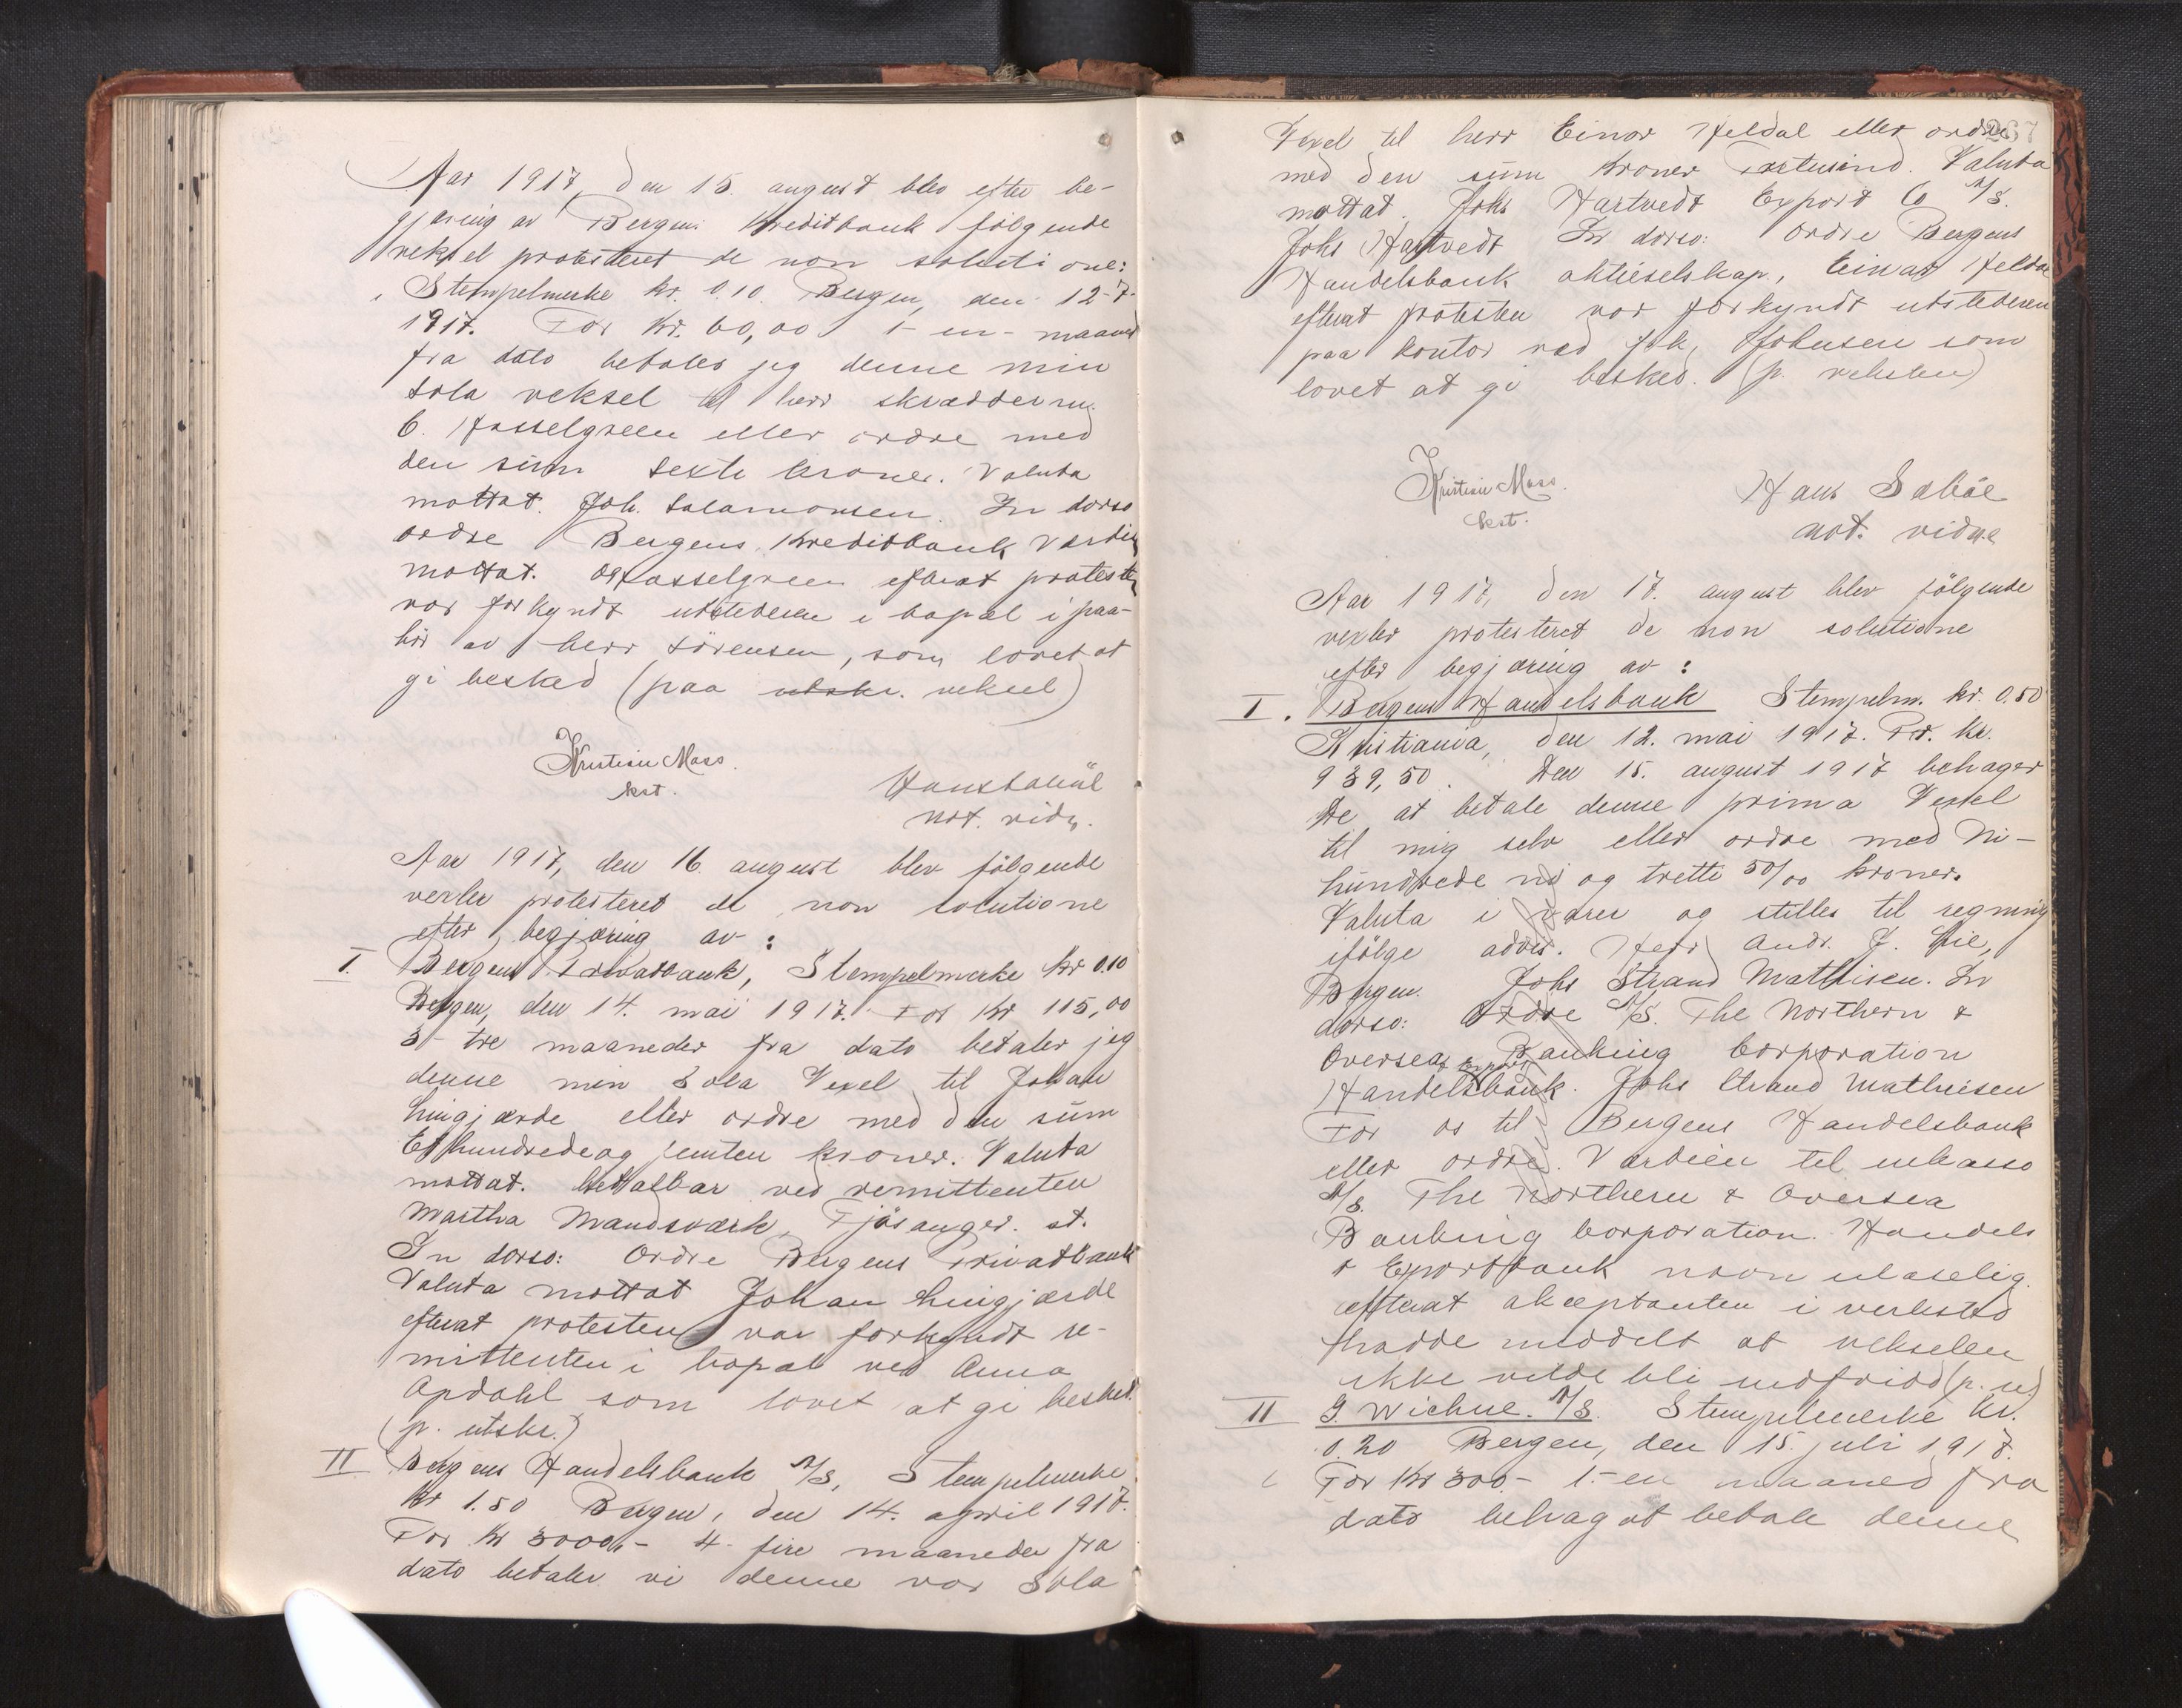 Aar 1917, den 15. august blev efter be-
gjæring av Bergens Kreditbank følgende
veksel protesteret de non solutione:
Stempelmerke kr. 0.10. Bergen, den 12-7-
1917. For Kr. 60,00 1-en- maaned
fra dato betaler jeg denne min
sola veksel til herr skræddderm.
C. Hasselgreen eller ordre med
den sum sexti kroner. Valuta
mottat. Joh. Salamonsen. In dorso
ordre Bergens Kreditbank Værdien
mottat. Hasselgreen efterat protesten
var forkyndt utstederen i bopæl i paa-
hør av herr Sørensen, som lovet at
gi besked (paa utskr. veksel)
Kristian Mass.
kst.
not. vidn.
Aar 1917, den 16. august blev følgende
vexler protesteret de non solutione
efter begjæring av:
I. Bergens Privatbank, Stempelmerke kr 0.10
Bergen, den 14. mai 1917. For Kr 115,00
3- tre maaneder fra dato betaler jeg
denne min Sola Vexel til Johan
Lingjærde eller ordre med den sum
Ethundredeog femten kroner. Valuta
mottat. betalbar ved remittenten
Martha Mandsværk, Fjøsanger. st.
In dorso: Ordre Bergens Privatbank
Valuta mottat Johan Lingjærde
efterat protesten var forkyndt re-
mittenten i bopæl ved Anna
Opdahl som lovet at gi besked.
(p. utskr.)
II Bergens Handelsbank A/S, Stempelmerke
kr 1.50 Bergen, den 14. april 1917.
For Kr 3000,- 4- fire maaneder fra
dato betaler vi denne vor Sola
267
Vexel til herr Einar Heldal eller ordre
med den sum kroner Tretusind. Valuta
mottat. Johs Hartvedt Export Co A/S.
Johs Hartvedt In dorso: Ordre Bergens
Handelsbank aktieselskap, Einar Heldal
efterat protesten var forkyndt utstederen
paa kontor ved frk. Johnsen som
lovet at gi besked. (p. vekslen)
Kristian Mass.
kst.
Hans Sabøe
not. vidne
Aar 1917, den 17. august blev følgende
vexler protesteret de non solutione
efter begjæring av:
I. Bergens Handelsbank Stempelm. kr. 0.50
Kristiania, den 12. mai 1917. Pr. kr.
939,50. Den 15. august 1917 behager
De at betale denne prima Vexel
til mig selv eller ordre med Ni-
hundrede ni og tretti 50/00 kroner.
Valuta i varer og stilles til regning
ifølge advis. Herr Andr. J. Lie,
Bergen. Johs Strand Mathisen. In
dorso: Ordre A/S. The Northern &
Oversea Banking Corporation
Handelsbank. Johs Strand Mathiesen
For os til Bergens Handelsbank
eller ordre. Værdien til inkasso
A/S. The Northern & Oversea
Banking Corporation. Handels
& Exportbank navn ulæselig.
efterat akceptanten i verksted
hadde meddelt at vekselen
ikke vilde bli indfridd (p. u.)
II G. Wichne. A/S. Stempelmerke kr.
0.20 Bergen, den 15. juli 1917.
For Kr 300.- 1.- en maaned fra
dato behag at betale denne